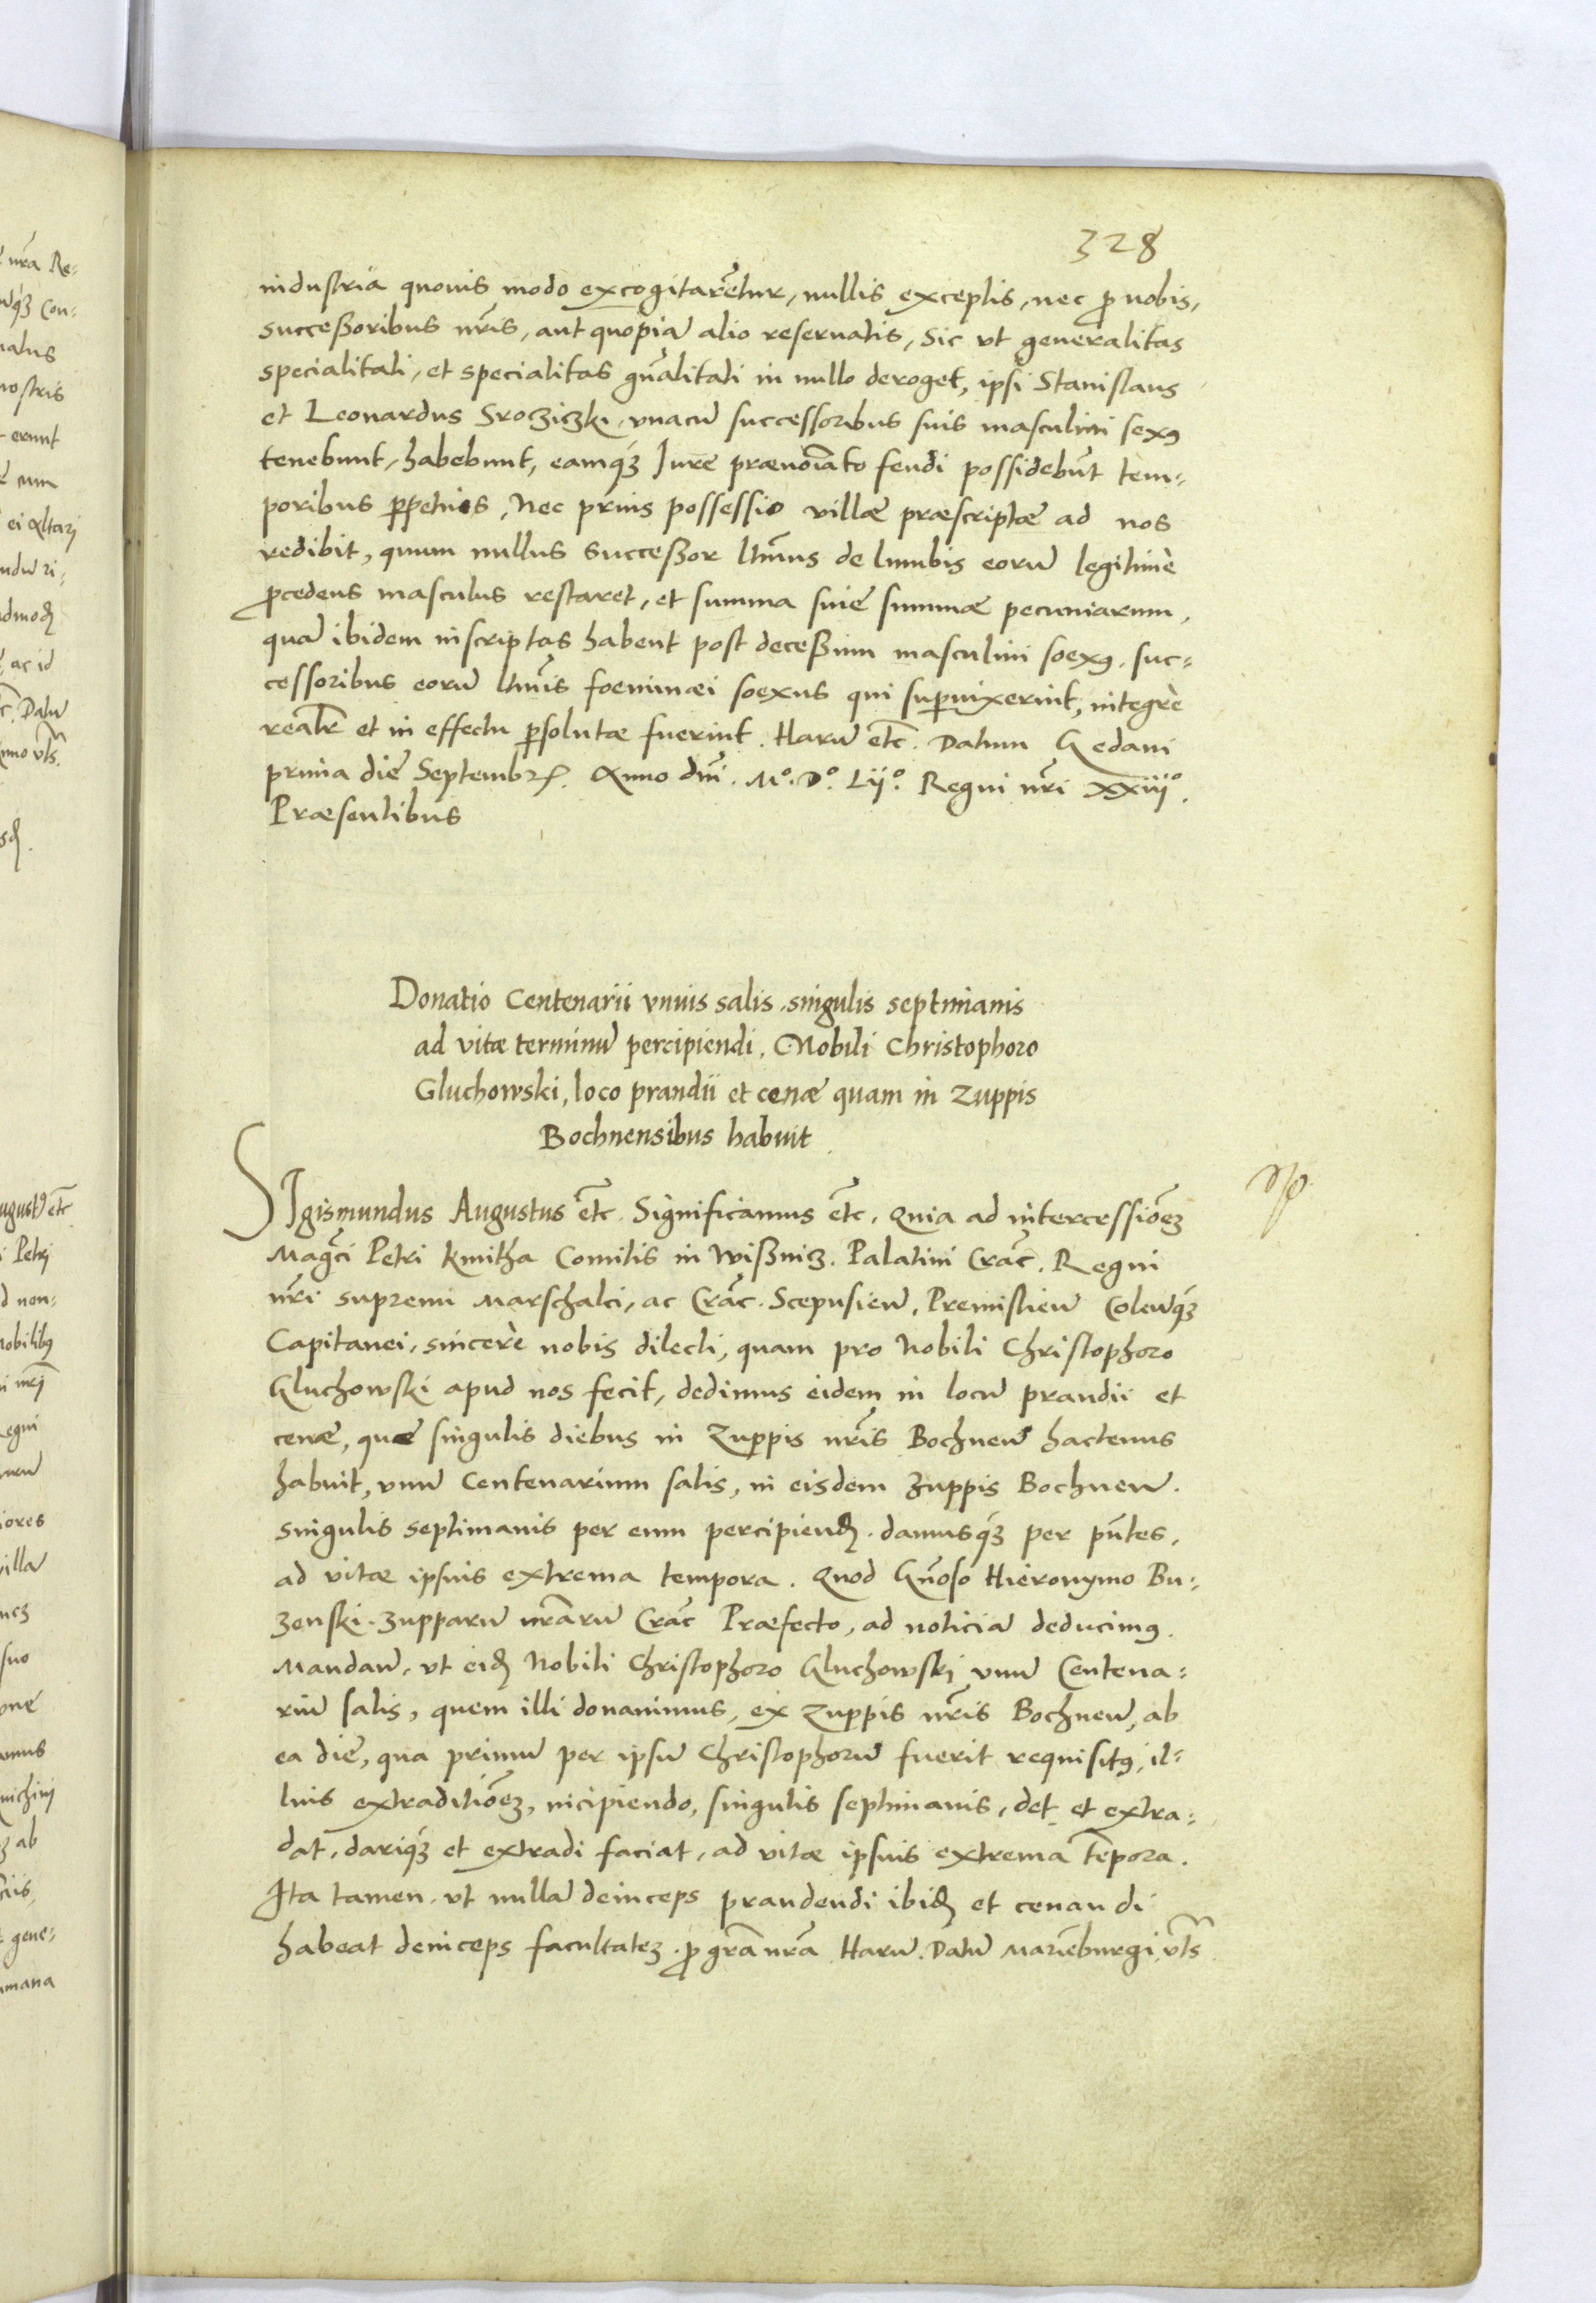 328
industria quouis modo excogitarẽtur, nullis exceptis, nec ꝓ nobis,
succeßoribus nr̃is, aut quopiã alio reseruatis, Sic vt generalitas
specialitati, et specialitas gñalitati in nullo deroget, ipsi Stanislaus
et Leonardus Srocziczki, vnacũ successoribus suis masculini sexꝯ
tenebunt, habebunt, eamqꝫ Iure prænoĩato feudi possidebũt tem-
poribus ꝑpetuis, Nec prius possessio villæ præscriptæ ad nos
redibit, quum nullus Succeßor ltĩmus de lumbis eorũ legitimè
ꝓcedens masculus restaret, et summa siue summæ pecuniarum,
quã ibidem inscriptas habent post deceßum masculini soexꝯ, suc-
cessoribus eorũ ltĩmis foeminæi soexus qui suꝑuixerint, integrè
realr̃ et in effectu ꝑsolutæ fuerint. Harũ etc̃. Datum Gedani
prima die Septembr̃. Anno dñi. Mº. Dº. Lijº. Regni nr̃i xxiijº.
Præsentibus
Donatio Centenarii vnius salis, singulis septimanis
ad vitæ terminũ percipiendi, Nobili Christophoro
Gluchowski, loco prandii et cenæ quam in zuppis
Bochnensibus habuit
SIgismundus Augustus etc̃. Significamus etc̃. Quia ad intercessiõeꝫ
Magc̃i Petri Kmitha Comitis in Wißnicz. Palatini Crac̃. Regni
nr̃i supremi Marschalci, ac Crac̃. Scepusieñ, Premislieñ Coleñqꝫ
Capitanei, sincerè nobis dilecti, quam pro Nobili Christophoro
Gluchowski apud nos fecit, dedimus eidem in locũ prandii et
cenæ, quæ singulis diebus in Zuppis nr̃is Bochneñ hactenus
habuit, vnũ Centenarium salis, in eisdem zuppis Bochneñ.
singulis septimanis per eum percipienđ. damusqꝫ per pñtes,
ad vitæ ipsius extrema tempora. Quod Gñoso Hieronymo Bu-
zenski. zupparũ nr̃arũ Crac̃ Præfecto, ad noticiã deducimꝯ.
Mandañ, vt eiđ Nobili Christophoro Gluchowski vnũ Centena-
riũ salis, quem illi donauimus, ex Zuppis nr̃is Bochneñ, ab
ea die, qua primũ per ipsũ Christophorũ fuerit requisitꝯ, il-
lius extraditiõeꝫ, incipiendo, singulis septimanis, det et extra-
dat, dariqꝫ et extradi faciat, ad vitæ ipsius extrema tẽpora.
Ita tamen, vt nullã deinceps prandendi ibiđ et cenandi
habeat deinceps facultateꝫ. ꝓ gr̃a nr̃a Harũ. Datũ Mariẽburgi vts̃